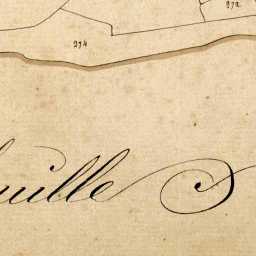 272
274
uille S